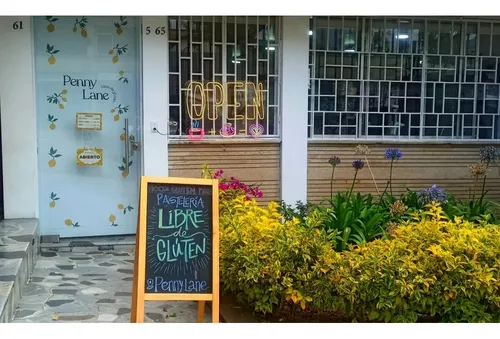 61
5 65
Penny
Lane
OPEN
ABIERTO
PASTELERÍA
LIBRE
de
GLUTEN
@PennyLane